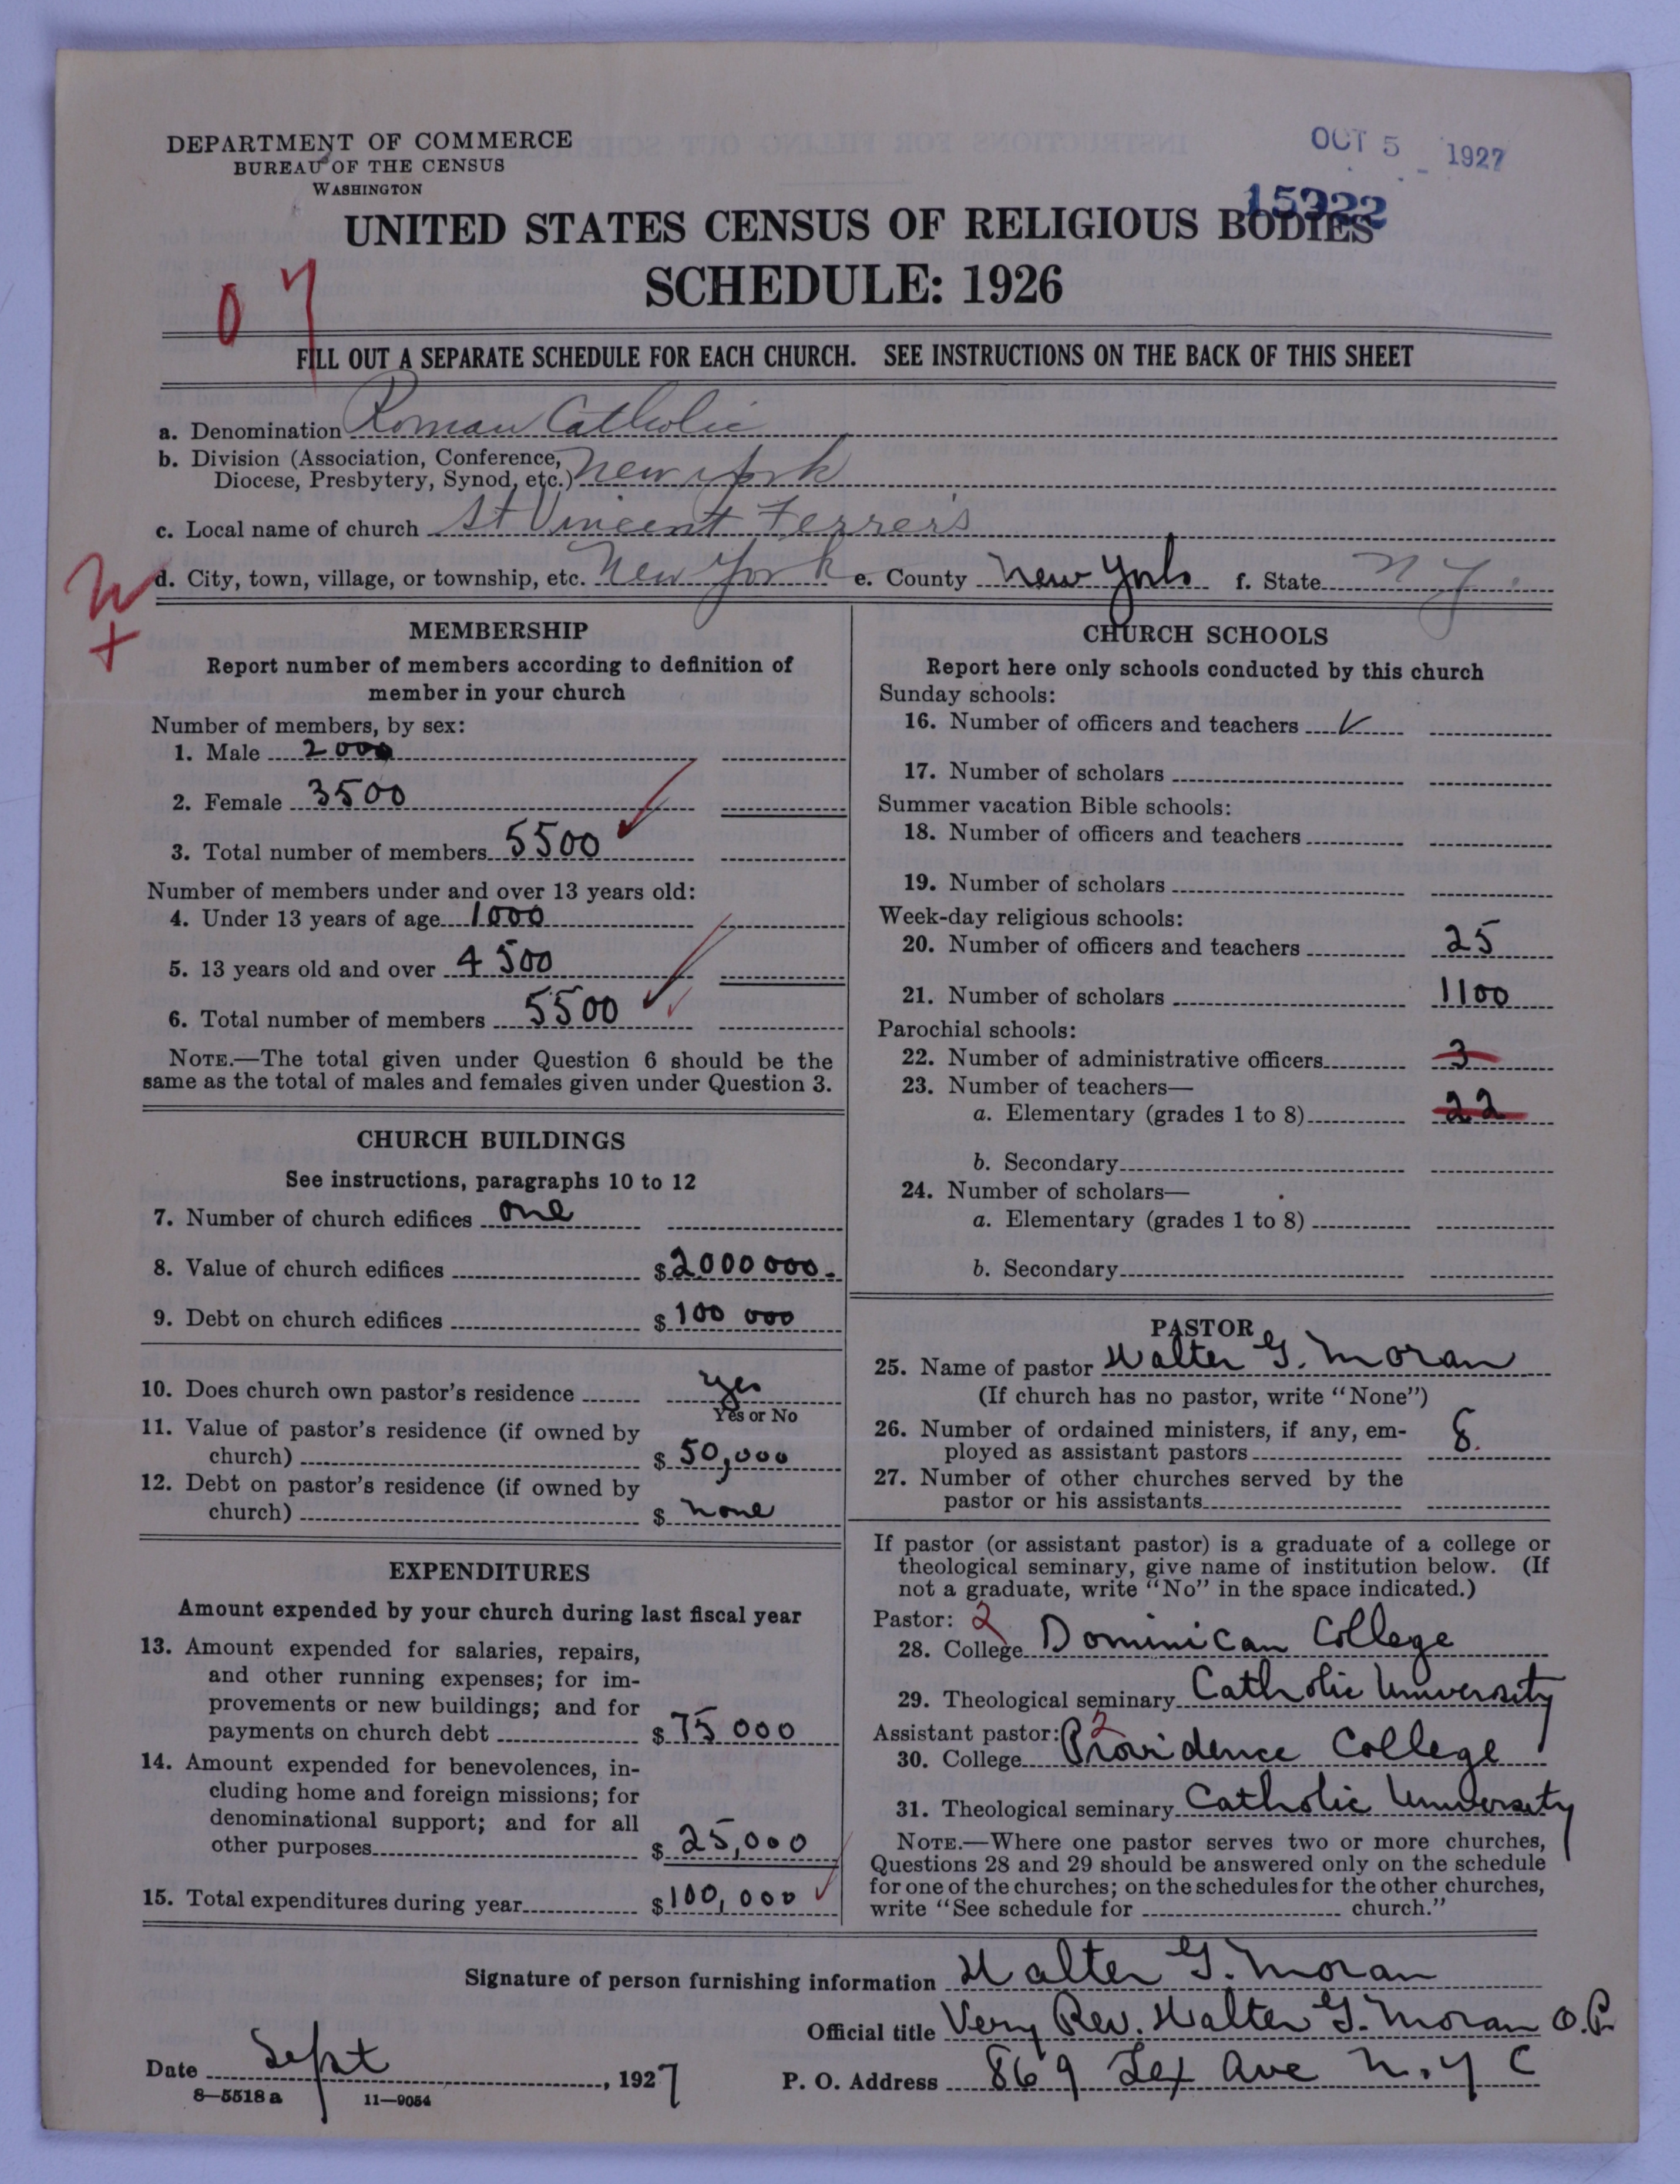 DEPARTMENT OF COMMERCE
BUREAU OF THE CENSUS
WASHINGTON
OCT 5 1927
15922
UNITED STATES CENSUS OF RELIGIOUS BODIES
SCHEDULE: 1926
FILL OUT A SEPARATE SCHEDULE FOR EACH CHURCH. SEE INSTRUCTIONS ON THE BACK OF THIS SHEET
a. Denomination Roman Catholic
b. Division (Association, Conference, Diocese, Presbytery, Synod, etc.) New York
c. Local name of church St Vincent Ferrer's
d. City, town, village, or township, etc. New York e. County New York f. State N Y.
MEMBERSHIP
Report number of members according to definition of
member in your church
Number of members, by sex:
1. Male 2000
2. Female 3500
3. Total number of members 5500
Number of members under and over 13 years old:
4. Under 13 years of age 1000
5. 13 years old and over 4500
6. Total number of members 5500
NOTE.—The total given under Question 6 should be the
same as the total of males and females given under Question 3.
CHURCH BUILDINGS
See instructions, paragraphs 10 to 12
7. Number of church edifices one
8. Value of church edifices $2000000.
9. Debt on church edifices $100 000
10. Does church own pastor's residence yes
Yes or No
11. Value of pastor's residence (if owned by
church) $50,000
12. Debt on pastor's residence (if owned by
church) $none
EXPENDITURES
Amount expended by your church during last fiscal year
13. Amount expended for salaries, repairs,
and other running expenses; for im-
provements or new buildings; and for
payments on church debt $75 000
14. Amount expended for benevolences, in-
cluding home and foreign missions; for
denominational support; and for all
other purposes $25,000
15. Total expenditures during year $100,000
CHURCH SCHOOLS
Report here only schools conducted by this church
Sunday schools:
16. Number of officers and teachers
17. Number of scholars
Summer vacation Bible schools:
18. Number of officers and teachers
19. Number of scholars
Week-day religious schools:
20. Number of officers and teachers 25
21. Number of scholars 1100
Parochial schools:
22. Number of administrative officers 3
23. Number of teachers—
a. Elementary (grades 1 to 8) 22
b. Secondary
24. Number of scholars—
a. Elementary (grades 1 to 8)
b. Secondary
PASTOR
25. Name of pastor Walter G. Moran
(If church has no pastor, write "None")
26. Number of ordained ministers, if any, em-
ployed as assistant pastors 8.
27. Number of other churches served by the
pastor or his assistants
If pastor (or assistant pastor) is a graduate of a college or
theological seminary, give name of institution below. (If
not a graduate, write "No" in the space indicated.)
Pastor: 2
28. College Dominican College
29. Theological seminary Catholic University
Assistant pastor: 2
30. College Providence College
31. Theological seminary Catholic University
NOTE.—Where one pastor serves two or more churches,
Questions 28 and 29 should be answered only on the schedule
for one of the churches; on the schedules for the other churches,
write "See schedule for church."
Signature of person furnishing information Walter G. Moran
Official title Very Rev. Walter G. Moran O.P.
Date Sept, 1927 P. O. Address 869 Lex Ave N.Y C
8—5518 a 11—9054